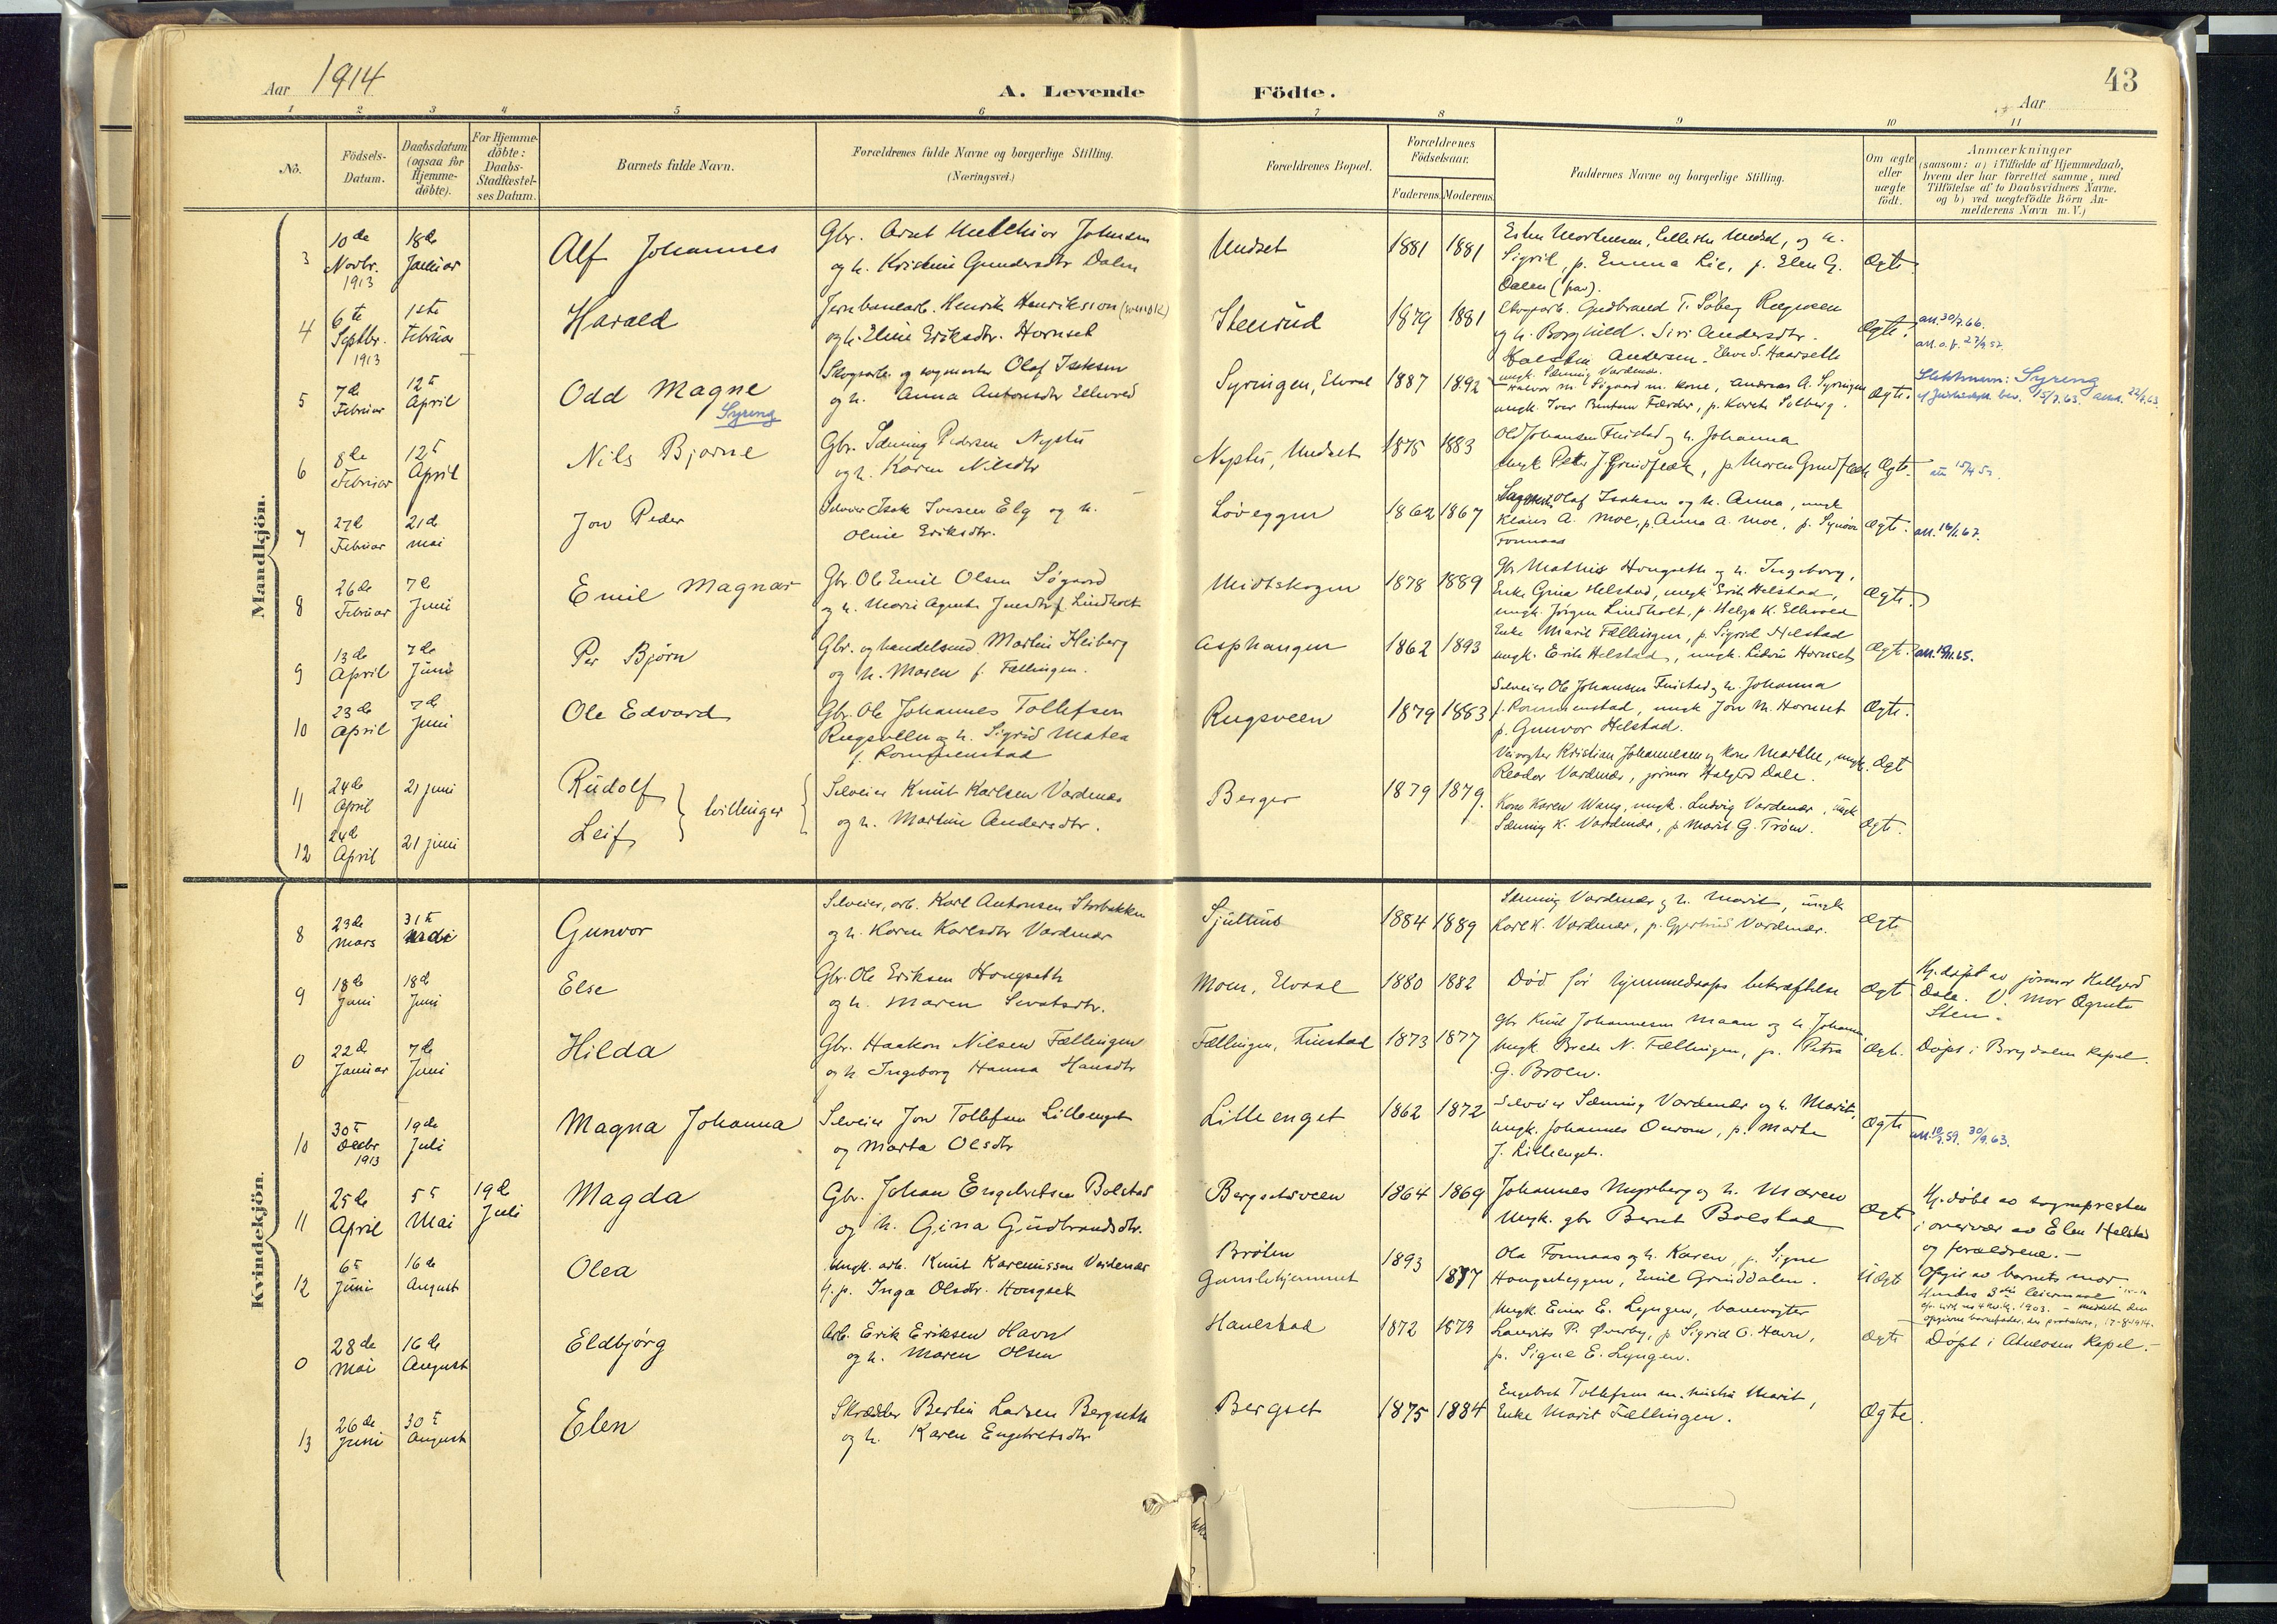 Aar 1914
A. Levende Födte.
43
Aar
1 2 3 4 5 6 7 8 9 10 11
No.
Födsels-Datum.
Daabsdatum (ogsaa for Hjemme-döbte).
For Hjemme-döbte: Daabs-Stadfæstel-ses Datum.
Barnets fulde Navn.
Forældrenes fulde Navne og borgerlige Stilling. (Næringsvei.)
Forældrenes Bopæl.
Forældrenes Födselsaar.
Faderens. Moderens.
Faddernes Navne og borgerlige Stilling.
Om ægte eller uægte födt.
Anmærkninger (saasom: a) i Tilfælde af Hjemmedaab, hvem der har forrettet samme, med Tilföielse af to Daabsvidners Navne. og b) ved uægtefödte Börn An-melderens Navn m. V.)
Mandkjön.
3 10de Novbr. 1913 18de Januar Alf Johannes Gbr. Arnt Melchior Johnsen
og h. Kristine Gundersdtr Dalen
Undset 1881 1881
Sigrid, p. Emma Lie, p. Elen G.
Dalen (hav).
Ægte
4 6te Septbr. 1913 1ste Februar Harald Jernbanearb. Henrik Henriksson (svensk)
og h. Eline Eriksdtr. Hornset
Stenrud 1879 1881
og h. Borghild. Siri Andersdtr.
Ægte. att. 30/7.66.
5 7de Februar 12te April Odd Magne
Syreng
Skogsarb. og sagmester Olaf Isaksen
og h. Anna Antonsdtr Ellevold
Syringen, Elvaal 1887 1892
Halvor M. Sigaard m. kone, Andreas A. Syringen
Ægte. Slektsnavn: Syreng
6 8de Februar 12te April Nils Bjarne Gbr. Sæming Pedersen Nystu
og h. Karen Nilsdtr
Nystu, Undset 1875 1883
Ole Johansen Finstad og h. Johanna
Ungk Peter J. Grindflek, p. Maren Grindflek
Ægte.
7 27de Februar 21de mai Jon Peder Selveier Isak Iversen Elg og h.
Oline Eriksdtr.
Löveggen 1862 1867
Olaf Isaksen og h. Anna, ungk
Klaus A. Moe, p. Anna A. Moe, p. Synöve
Ægte. att. 16/1.67.
8 26de Februar 7de Juni Emil Magnar Gbr. Ole Emil Olsen Sögaard
Midtskogen 1878 1889
Gbr Mathis Hongseth og h. Ingeborg,
Enke Gina Helstad, ungk Erik Helstad,
ungk. Jörgen Lindholt, p. Helga K. Ellevold
Ægte.
9 13de April 7de Juni Per Björn Gbr. og handelsmd. Martin Heiberg
og h. Maren f. Fællingen.
Asphaugen 1862 1893
Enke Marit Fællingen, p. Sigrid Helstad
ungk. Erik Helstad, ungk. Ludvig Hornset
Ægte.
10 23de April 7de Juni Ole Edvard Gbr. Ole Johannes Tollefsen
Rugsveen og h. Sigrid Matea
f. Rommenstad
Rugsveen 1879 1883
Selveier Ole Johansen Finstad og h. Johanna
f. Rommenstad, ungk Jon M. Hornset
p. Gunvor Helstad.
Ægte.
11 24de April 21 juni Rudolf
12 24de April 21 juni Leif
tvillinger
Selveier Knut Karlsen Vardenær
og h. Martine Andersdtr.
Berger 1879 1879.
Veivogter Kristian Johannesen og kone Marthe, ungk.
Reodor Vardenær, jormor Halgerd Dale.
Ægt
Kone Karen Wang, ungk. Ludvig Vardenær, ungk
Sæming K. Vardenær, p. Marit G. Tröen.
Ægt.
Kvindekjön.
8 23de Mars 31te Mai Gunvor Selveier, arb. Karl Antonsen Storbakken
og h. Karen Karlsdtr Vardenær
1884 1889
Sæming Vardenær og h. Marit, ungk
Karl K. Vardenær, p. Gjertrud Vardenær.
Ægte
9 18de Juni 18de Juni Else Gbr. Ole Eriksen Hongseth
og h. Maren Sivertsdtr.
Moen, Elvaal 1880 1882
Död för hjemmedaaps bekræftelse
Ægt Hj.döpt av jormor Hallgerd
Dale. V. Mor Agnete
Sten.
0 22de Januar 7de Juni Hilda Gbr. Haakon Nilsen Fællingen
og h Ingeborg Hanna Hansdtr
Fællingen, Finstad 1873 1877
Gbr Knut Johannesen Maan og h Johanne
Ungk. Brede N. Fællingen, p. Petra
G. Broen.
Ægte. Döpt i Brydalen Kapel.
10 30te Decbr 1913 19de Juli Magna Johanna Selveier Jon Tollefsen Lilleenget
og Marta Olsdtr
Lilleenget 1862 1872
Selveier Sæming Vardenær og h. Marit,
Ungk. Johannes , p. Marte
J. Lilleenget.
Ægte
11 25de April 5te Mai 19de Juli Magda Gbr. Johan Engebretsen Bolstad
og h. Gina Gudbrandsdtr.
Bergsetsveen 1864 1869
Johannes Myrberg og h. Maren
Ungk. gbr Bernt Bolstad
Ægt Hj.döbt av sognepresten
i overvær av Elen Helstad
og forældrene.
12 6te Juni 16de August Olea Ungk. arb. Knut Karenusson Vardenær
og p. Inga Olsdtr. Hongset
Bröten
Gamlehjemmet
1893
1877
Ola Formaas og h. Karen, p. Signe
Hongsteggen, Emil Grinddalen.
Uægt Opgir av barnets mor
0 28de Mai 16de August Eldbjörg Arb. Erik Eriksen Havn
og h. Maren Olsen
Hanestad 1872 1873
Ungk. Einar E. Lyngen, banevogter
Laurits P. Överby, p. Sigrid O. Havn,
p. Signe E. Lyngen.
Ægte Döpt i Atneosen Kapel.
13 26de Juni 30te August Elen Skrædder Bertin Larsen Bergseth
og h. Karen Engebretsdtr
Bergset 1875 1884
Engebret Tollefsen m. hustru Marit,
Enke Marit Fællingen.
Ægte.